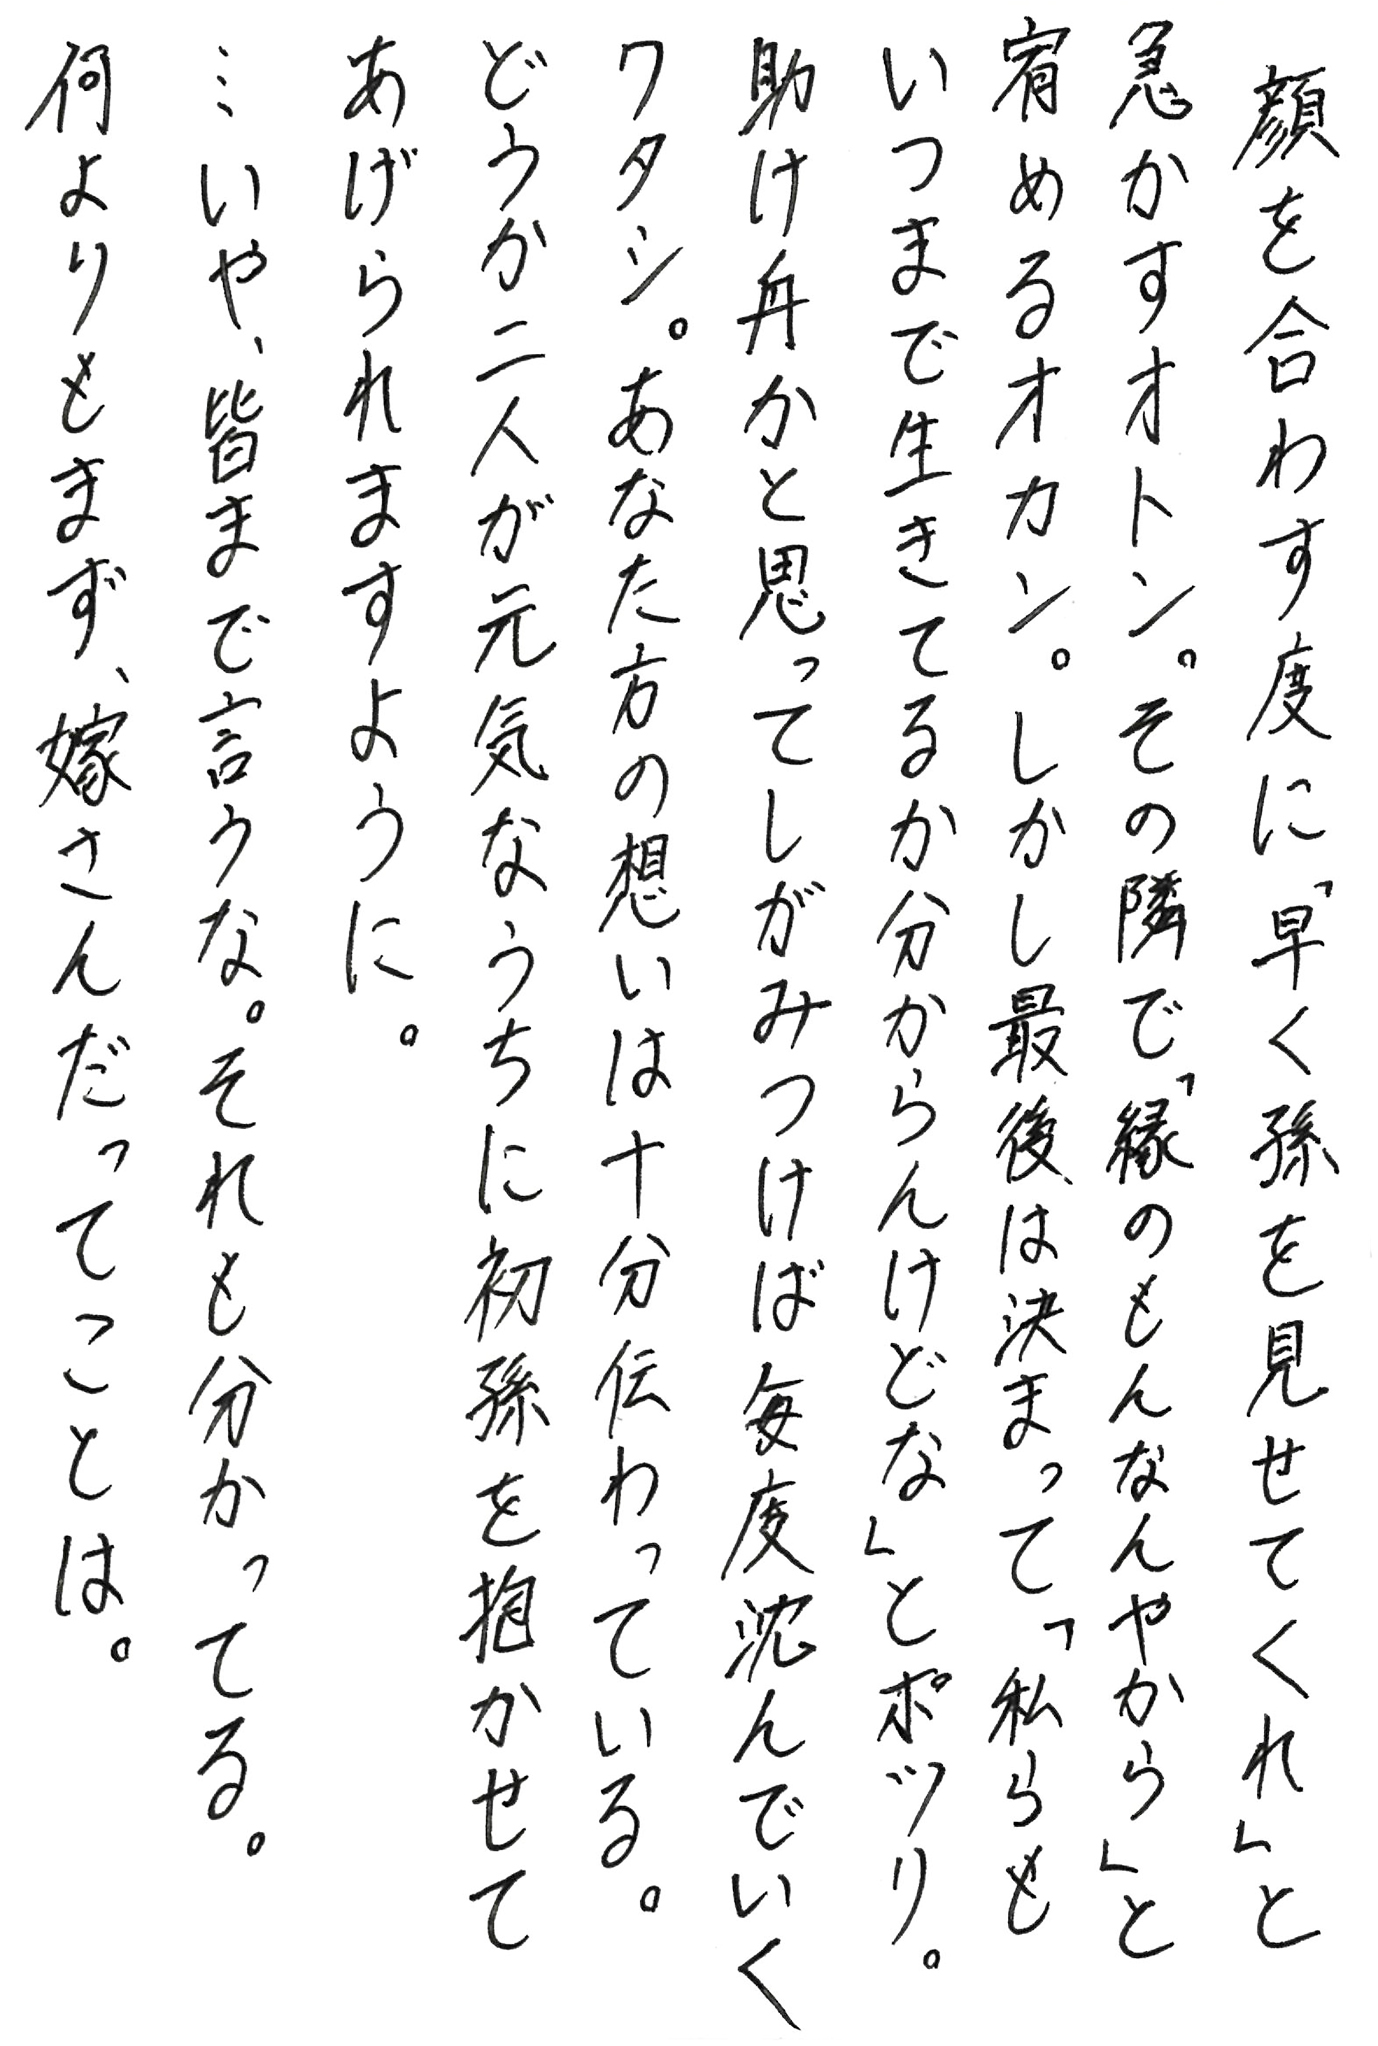 顔を合わす度に「早く孫を見せてくれ」と
急かすオトン。その隣で「縁のもんなんやから」と
宥めるオカン。しかし最後は決まって「私らも
いつまで生きてるか分からんけどな」とポツリ。
助け舟かと思ってしがみつけば毎度沈んでいく
ワタシ。あなた方の想いは十分伝わっている。
どうか二人が元気なうちに初孫を抱かせて
あげられますように。
…いや、皆まで言うな。それも分かってる。
何よりもまず、嫁さんだってことは。